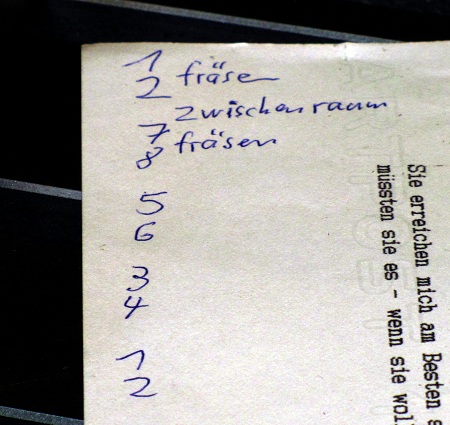 1
2 fräsen
zwischenraum
7
8 fräsen
5
6
3
4
1
2
Sie erreichen mich am Besten
müssten sie es - wenn sie